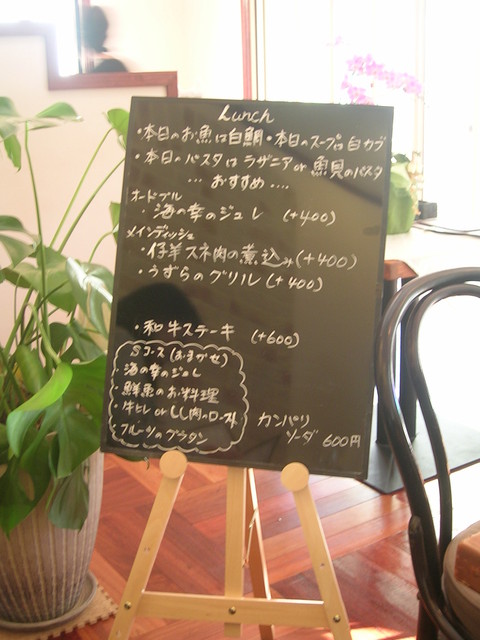 Lunch
・本日のお魚は白鯛・本日のスープは白カブ
・本日のパスタは ラザニア or 魚貝のパスタ
… おすすめ ….
オードブル
・海の幸のジュレ (+400)
メインディッシュ
・仔羊スネ肉の煮込み(+400)
・うずらのグリル(+400)
・和牛ステーキ (+600)
Sコース(おまかせ)
・海の幸のジュレ
・鮮魚のお料理
・牛ヒレ or しし肉のロースト
フルーツのグラタン
カンパリ
ソーダ 600円